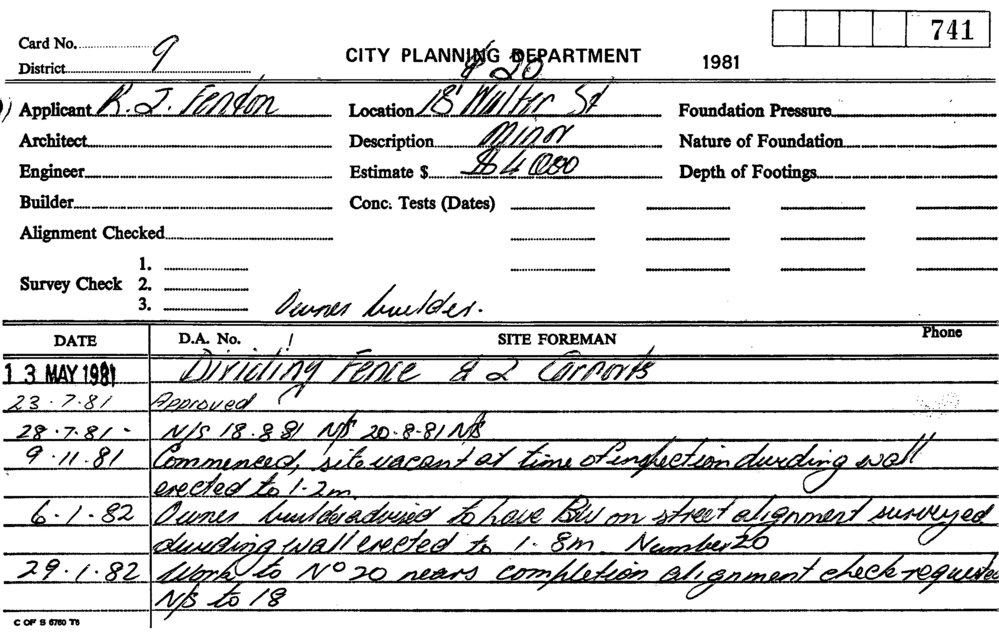 741
Card No. 9
CITY PLANNING DEPARTMENT 1981
District
& 20
Applicant R. J. Fenton Location 18 Walter St Foundation Pressure
Architect Description Minor Nature of Foundation
Engineer Estimate $ $4 000 Depth of Footings
Builder Conc. Tests (Dates)
Alignment Checked
1.
Survey Check 2.
3.
Owner builder.
DATE D.A. No. SITE FOREMAN Phone
13 MAY 1981 Dividing Fence & 2 Carports
23.7.81 Approved
28.7.81 - N/S 18.8.81 N/S 20-8-81 N/S
9.11.81 Commenced, site vacant at time of inspection dividing wall
erected to 1.2m.
6.1.82 Owner builder advised to have BW on street alignment surveyed
dividing wall erected to 1.8m. Number 20
29.1.82 Work to No 20 nears completion alignment check requested
N/S to 18
C OF S 6760 T5